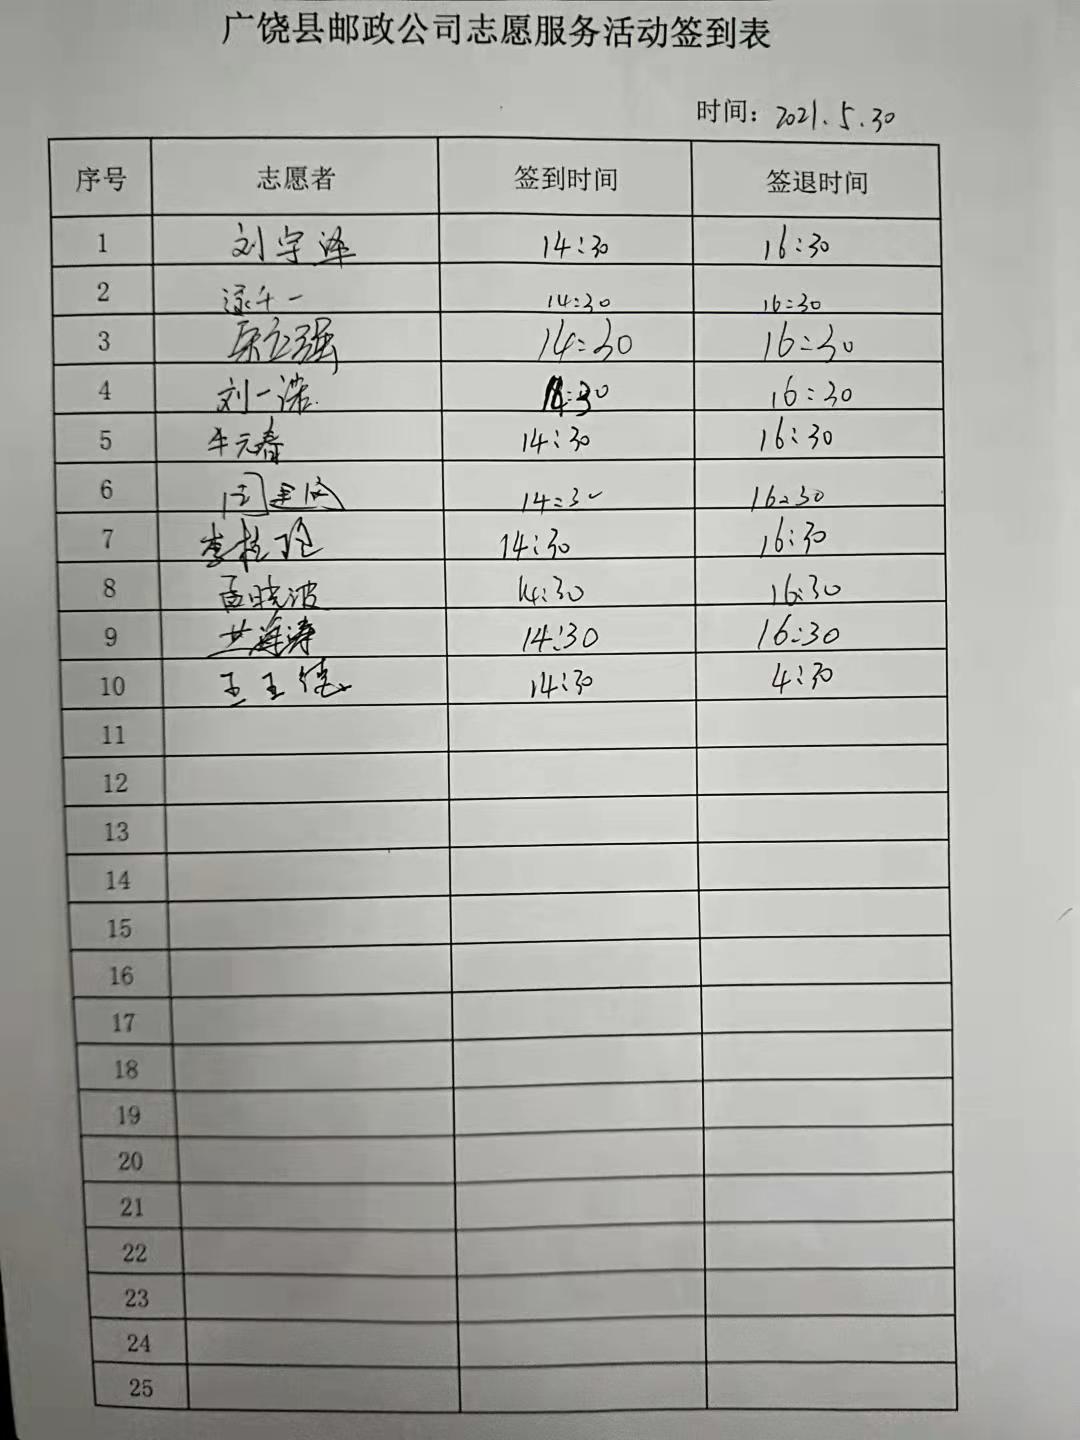 广饶县邮政公司志愿服务活动签到表
时间: 2021.5.30
序号 志愿者 签到时间 签退时间
1 刘宇泽 14:30 16:30
2 一 14:30 16:30
3 立强 14:30 16:30
4 刘一诺 14:30 16:30
5 牛元春 14:30 16:30
6 周建 14:30 16:30
7 李桂玲 14:30 16:30
8 孟晓波 14:30 16:30
9 海涛 14:30 16:30
10 王玉德 14:30 4:30
11
12
13
14
15
16
17
18
19
20
21
22
23
24
25